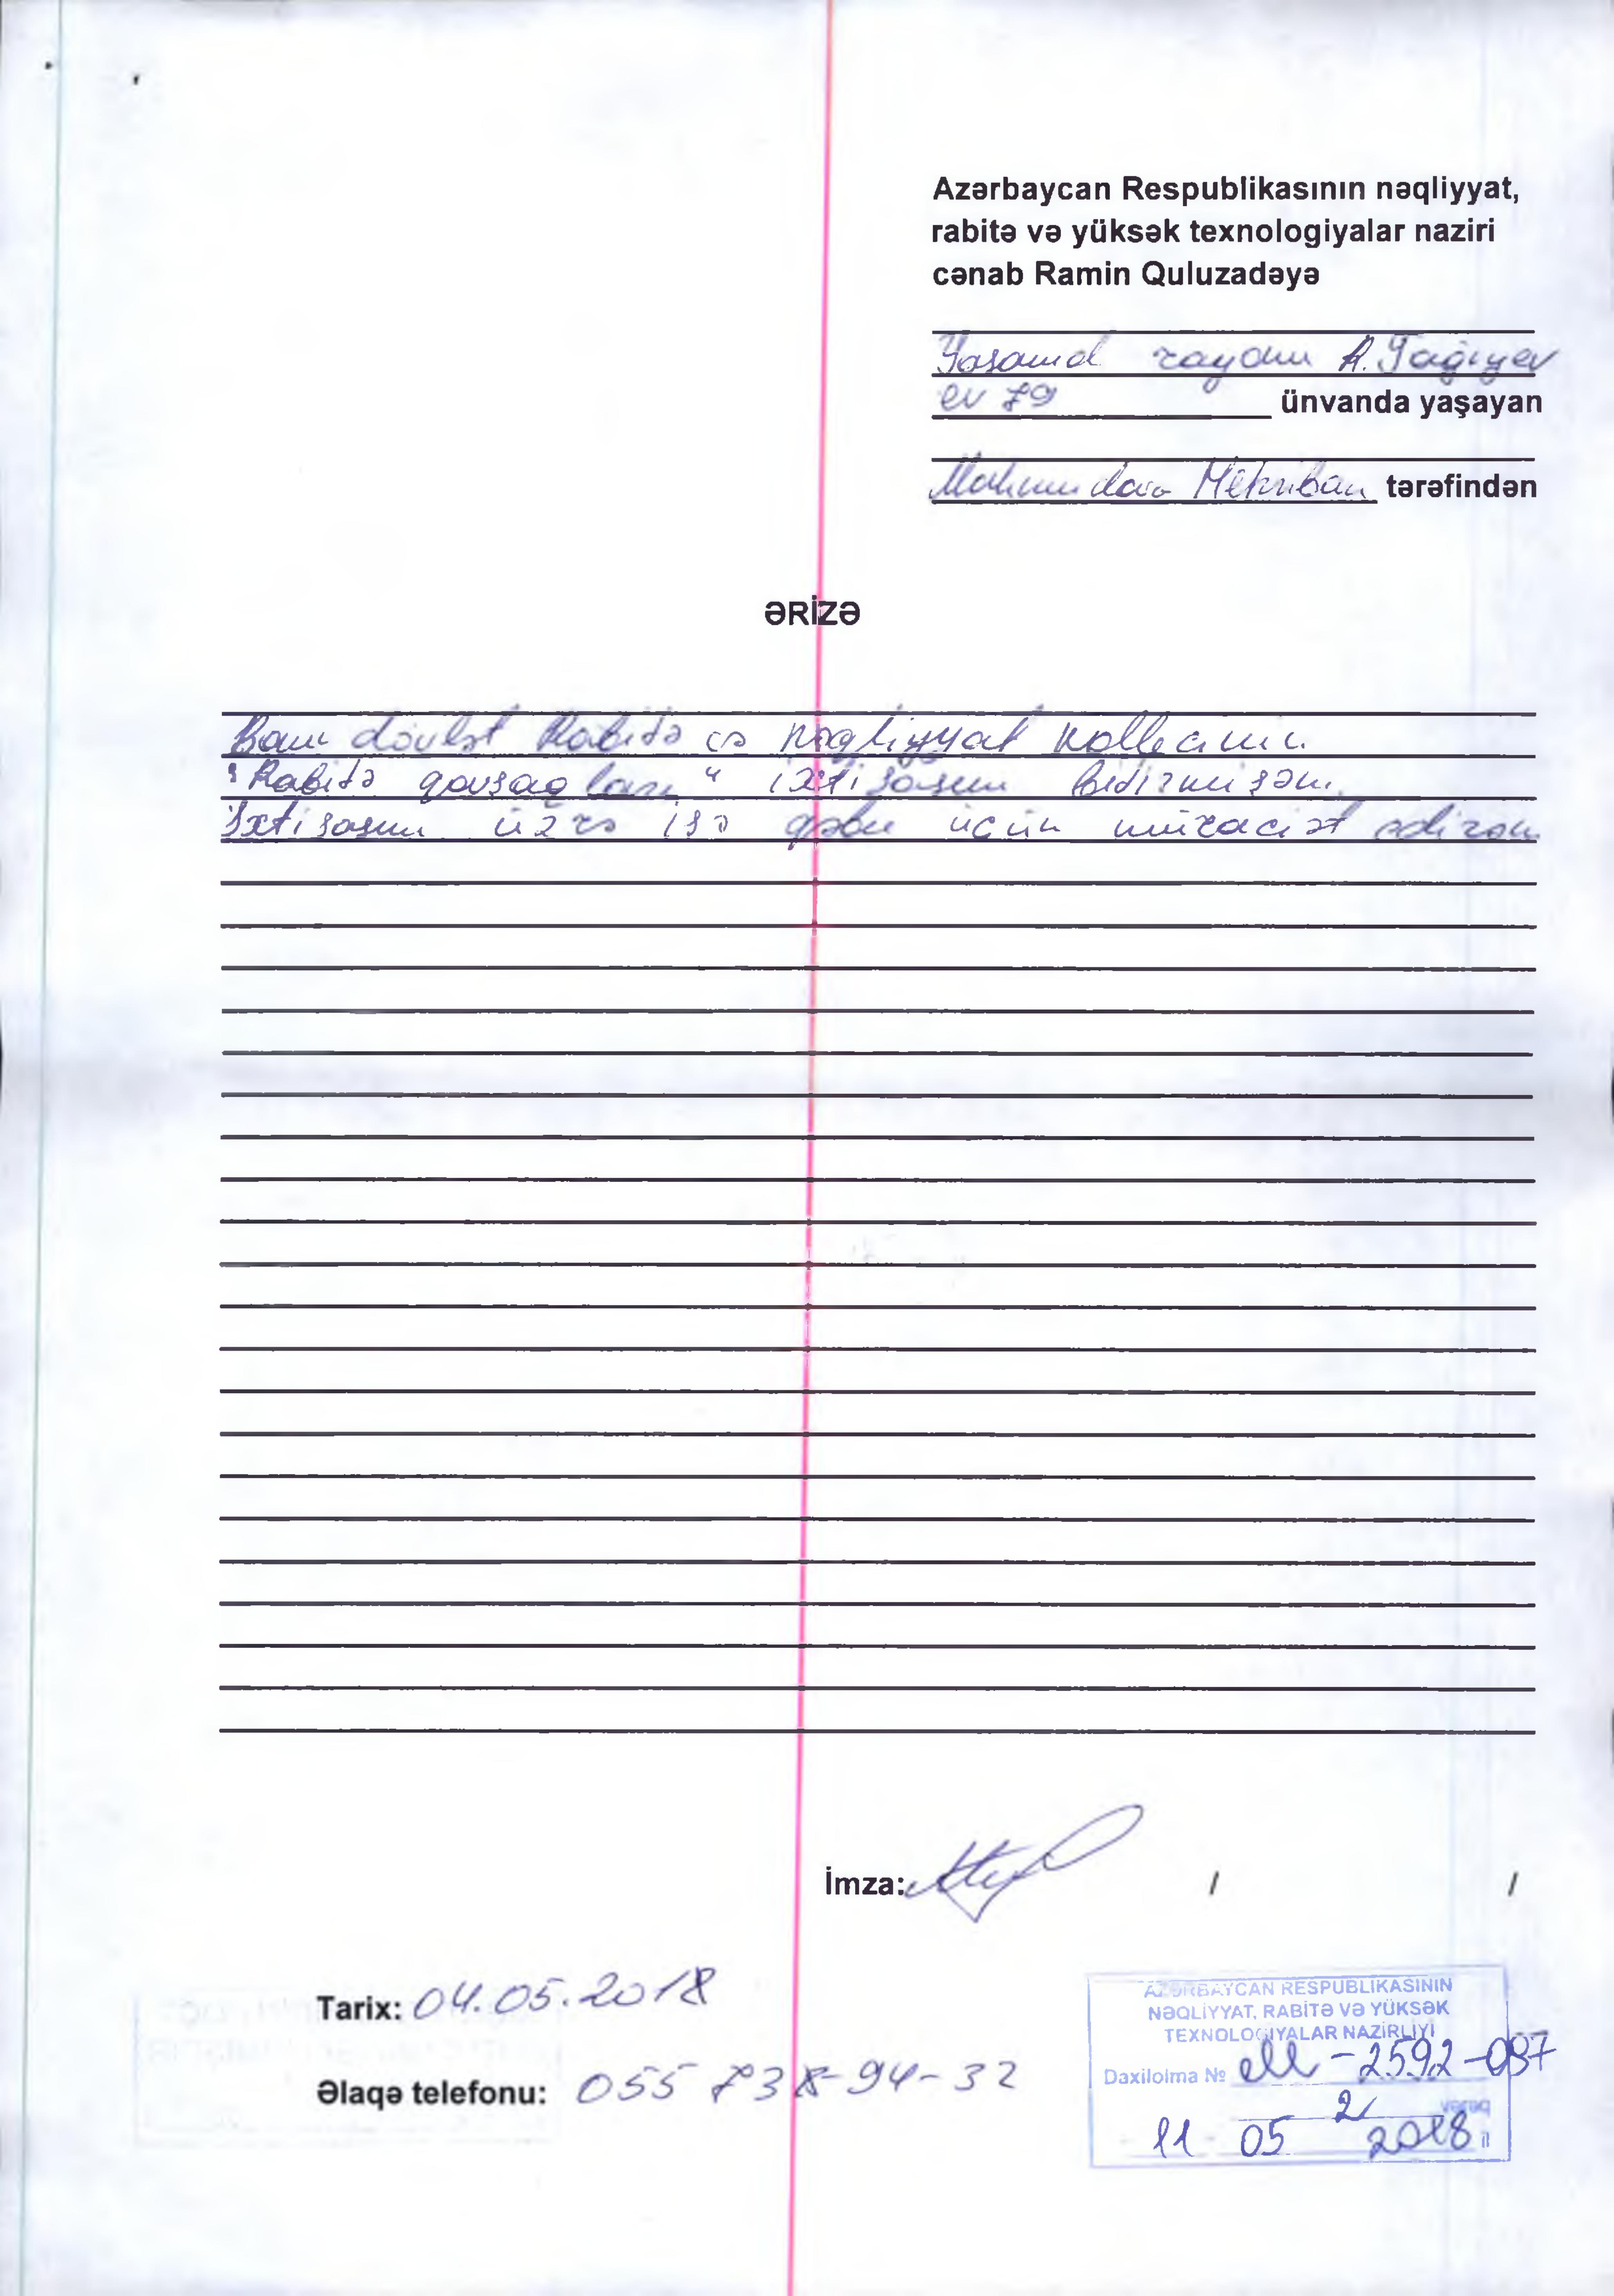 Azərbaycan Respublikasının nəqliyyat,
rabitə və yüksək texnologiyalar naziri
cənab Ramin Quluzadəyə
Yasamal rayonu A. Tağıyev
ev 79 ünvanda yaşayan
Mahmudova Mehriban tərəfindən
ƏRİZƏ
dövlət Rabitə və nəqliyyat kollecinin
"Rabitə qovşaqları" ixtisasını bitirmişəm.
İxtisasım üzrə işə qəbu üçün müraciət edirəm
İmza: / /
Tarix: 04.05.2018
Əlaqə telefonu: 055 738-94-32
AZƏRBAYCAN RESPUBLİKASININ
NƏQLİYYAT, RABİTƏ VƏ YÜKSƏK
TEXNOLOGİYALAR NAZİRLİYİ
Daxilolma № -2592-087
2 vərəq
11 05 2018 il